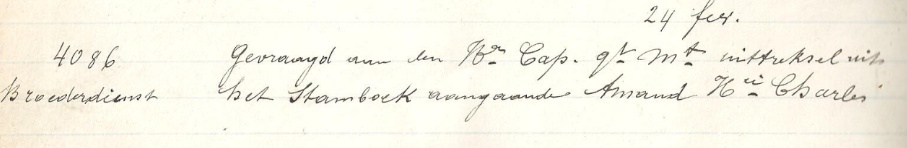 24 fer.
4086 Gevraagd aan den Hr Cap. qt Mt uittreksel uit
Broederdienst het Stamboek aangaande Amand Hri Charles